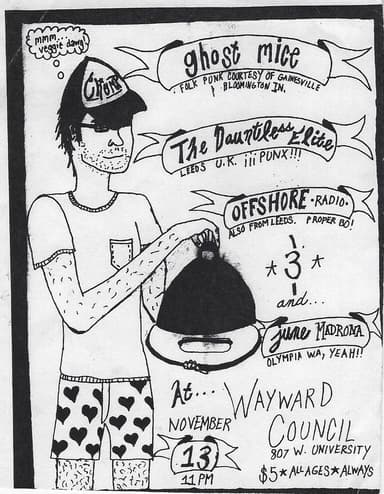 mmm...
veggie dawg
ghost mice
FOLK PUNK COURTESY OF GAINESVILLE
BLOOMINGTON IN.
The Dauntless Elite
LEEDS U.K. iii PUNX!!!
OFFSHORE ·RADIO·
ALSO FROM LEEDS. PROPER BO!
* 3 *
and...
june MADRONA
OLYMPIA WA, YEAH!!
At...
WAYWARD
COUNCIL
NOVEMBER
13
11 PM
807 W. UNIVERSITY
$5 * ALL AGES * ALWAYS